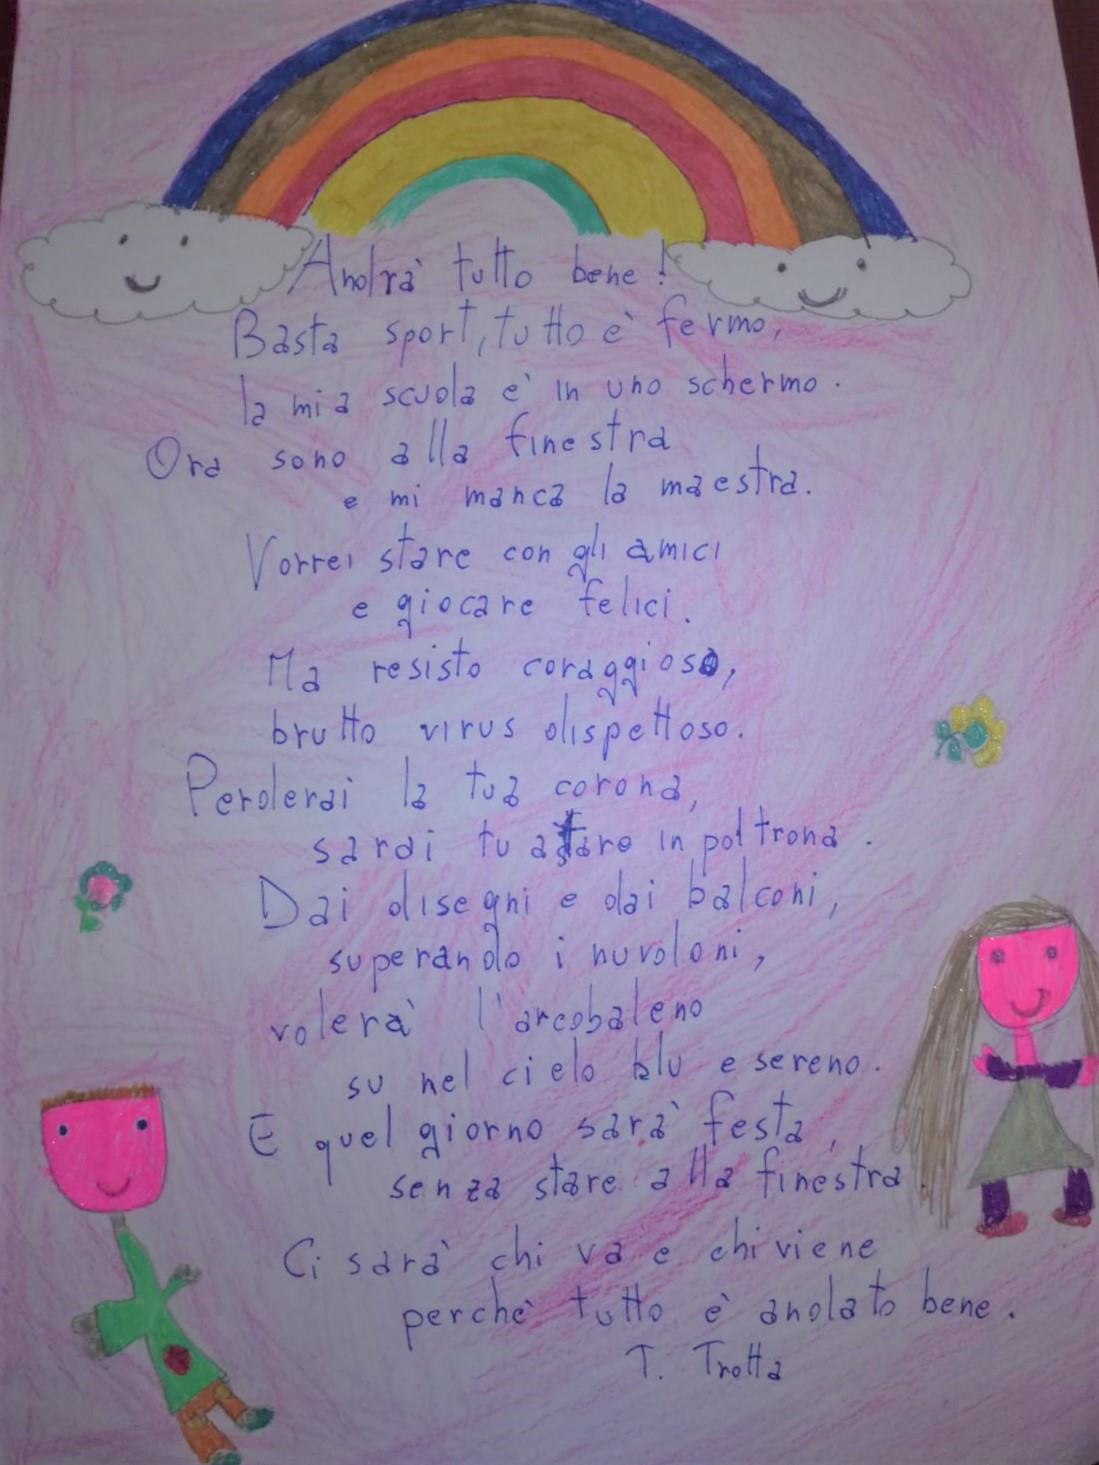 Andrà tutto bene!
Basta sport, tutto è fermo,
la mia scuola è in uno schermo.
Ora sono alla finestra
e mi manca la maestra.
Vorrei stare con gli amici
e giocare felici.
Ma resisto coraggioso,
brutto virus dispettoso.
Perderai la tua corona,
sarai tu a stare in poltrona.
Dai disegni e dai balconi,
superando i nuvoloni,
volerà l'arcobaleno
su nel cielo blu e sereno.
E quel giorno sarà festa,
senza stare alla finestra.
Ci sarà chi va e chi viene
perchè tutto è andato bene.
T. Trotta